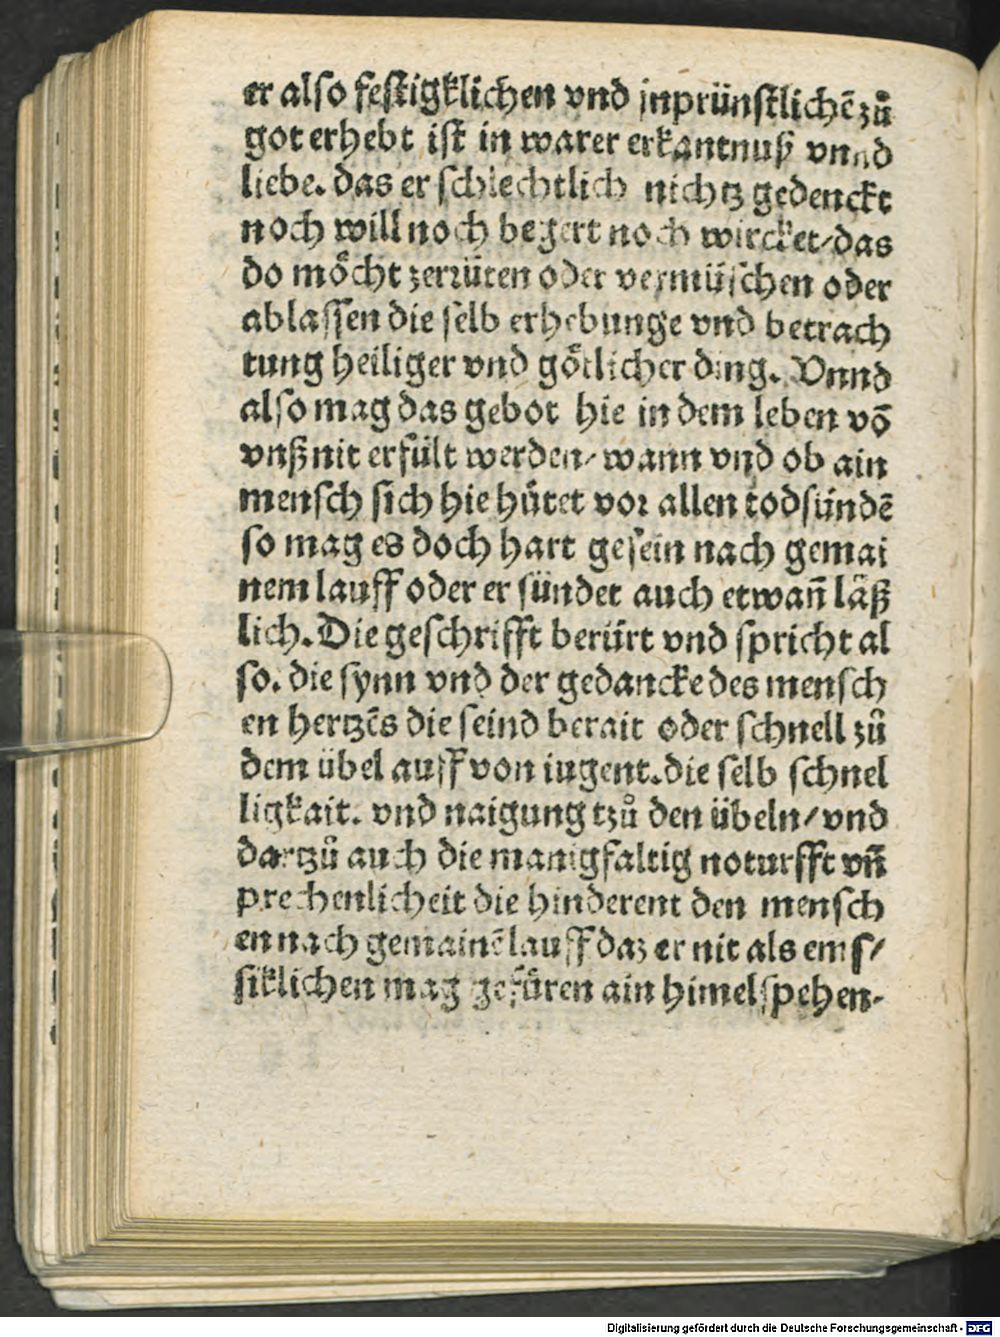 er also festigklichen vnd jnprünstlichē zů
got erhebt ist in warer erkantnuß vnnd
liebe. das er schlechtlich nichtz gedenckt
noch will noch begert noch wircket/das
do möcht zerrüten oder vermüschen oder
ablassen die selb erhebunge vnd betrach
tung heiliger vnd götlicher ding. Vnnd
also mag das gebot hie in dem leben vō
vnß nit erfült werden/wann vnd ob ain
mensch sich hie hütet vor allen todsündē
so mag es doch hart gesein nach gemai
nem lauff oder er sündet auch etwan̄ läß
lich. Die geschrifft berürt vnd spricht al
so. die synn vnd der gedancke des mensch
en hertzēs die seind berait oder schnell zů
dem übel auff von iugent. die selb schnel
ligkait. vnd naigung tzů den übeln/vnd
dartzů auch die manigfaltig noturfft vn̄
prechenlicheit die hinderent den mensch
en nach gemainē lauff daz er nit als emſ/
siklichen mag gefüren ain himelspehen-
Digitalisierung gefördert durch die Deutsche Forschungsgemeinschaft - DFG